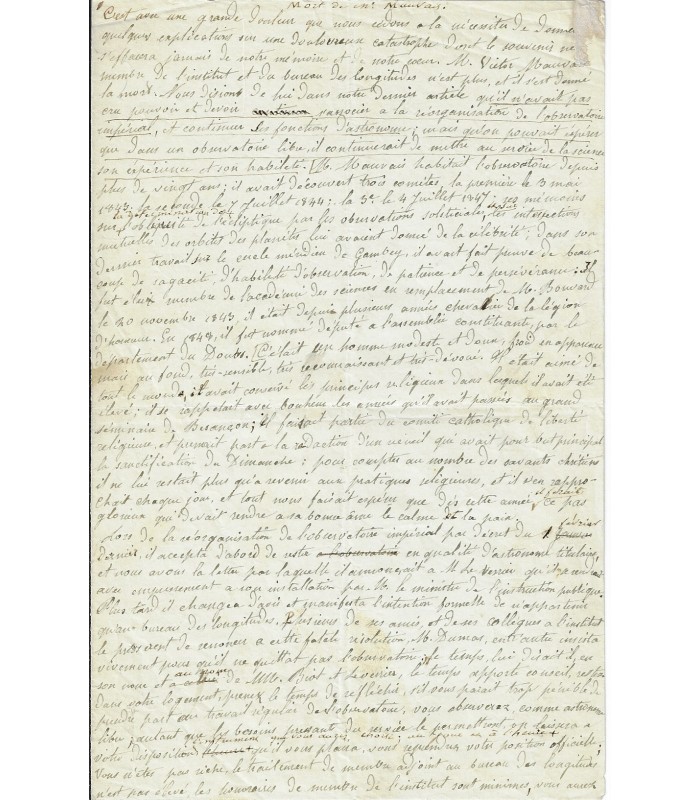 Mort de Mr Mauvais.
C'est avec une grande douleur que nous cédons a la nécessité de donner
quelques explications sur une douloureux catastrophe dont le souvenir ne
s'effacera jamais de notre mémoire et de notre cœur. M. Victor Mauvais
membre de l'institut et du bureau des longitudes n'est plus, et il s'est donné
la mort. Nous disions de lui dans notre dernier article qu'il n'avait pas
cru pouvoir et devoir s'associer a la réorganisation de l'observatoire
impérial, et continuer ses fonctions d'astronome; mais qu'on pouvait espérer
que dans un observatoire libre il continuerait de mettre au service de la science
son expérience et son habileté. M. Mauvais habitait l'observatoire depuis
plus de vingt ans; il avait découvert trois comètes la première le 3 mai
1843, la seconde le 7 Juillet 1844; la 3e le 4 Juillet 1847; ses mémoires
sur la détermination de l'obliquité de l'écliptique par les observations solsticiales, les intersections
mutuelles des orbites des planètes lui avaient donné de la célébrité; dans son
dernier travail sur le cercle méridien de Gambey il avait fait preuve de beau-
coup de sagacité, d'habileté d'observation, de patience et de persévérance. Il
fut élu membre de l'académie des sciences en remplacement de M. Bouvard
le 20 novembre 1843, il était depuis plusieurs années chevalier de la légion
d'honneur. En 1848, il fut nommé député a l'assemblée constituante, par le
département du Doubs. C'était un homme modeste et doux, froid en apparence
mais au fond, très-sensible, très reconnaissant et très-dévoué. Il était aimé de
tout le monde, il avait conservé les principes religieux dans lesquels il avait été
élevé; il se rappelait avec bonheur les années qu'il avait passées au grand
séminaire de Besançon; il faisait partie du comité catholique de liberté
religieuse, et prenait part a la rédaction d'un recueil qui avait pour but principal
la sanctification du Dimanche: pour compter au nombre des savants chrétiens
il ne lui restait plus qu'a revenir aux pratiques religieuses, et il s'en rappro-
chait chaque jour, et tout nous faisait espérer que dès cette année il ferait ce pas
glorieux qui devait rendre a sa bonne âme le calme et la paix.
Lors de la réorganisation de l'observatoire impérial par décret du 1 février
dernier, il accepta d'abord de rester a l'observatoire en qualité d'astronome titulaire,
et nous avons la lettre par laquelle il annonçait a M. Le Verrier qu'il
avec empressement a son installation par M. le ministre de l'instruction publique.
Plus tard il changea d'avis et manifesta l'intention formelle de n'appartenir
qu'au bureau des longitudes. Plusieurs de ses amis, et de ses collègues a l'institut
le pressèrent de renoncer a cette fatale résolution. M. Dumas, entr'autres insista
vivement pour qu'il ne quittat pas l'observatoire; le temps, lui disait-il, en
son nom et au nom de MM. Biot et Leverrier, le temps apporte conseil, restez
dans votre logement, prenez le temps de réfléchir, s'il vous parait trop pénible de
prendre part au travail régulier de l'observatoire, vous observerez, comme astronome
libre; autant que les besoins pressants du service le permettront, on laissera a
votre disposition qu'il vous plaira, vous votre position officielle;
vous n'êtes pas riche, le traitement de membre adjoint au bureau des longitudes
n'est pas élevé les honoraires de membre de l'institut sont minimes, vous aurez